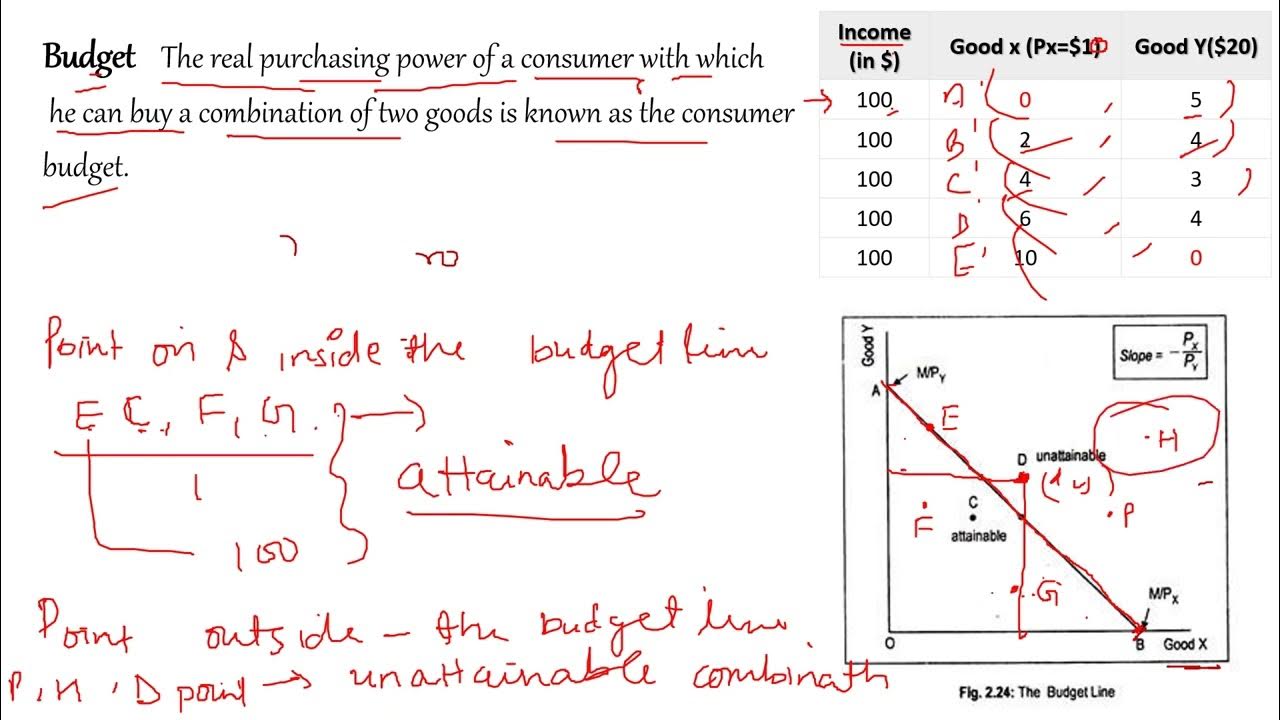 Budget The real purchasing power of a consumer with which
he can buy a combination of two goods is known as the consumer
budget.
Income (in $) Good x (Px=$10) Good Y($20)
100 A' ( 0 , 5 )
100 B' ( 2 , 4 )
100 C' ( 4 , 3 )
100 D ( 6 , 4
100 E' ( 10 , 0
Point on & inside the budget line
E C, F, G. } → attainable
1
100
Point outside - the budget line
P, H, D point → unattainable
Good Y
Slope = - Px/Py
A M/PY
E
H
D unattainable
F
C
attainable
P
G
M/PX
O B Good X
Fig. 2.24: The Budget Line